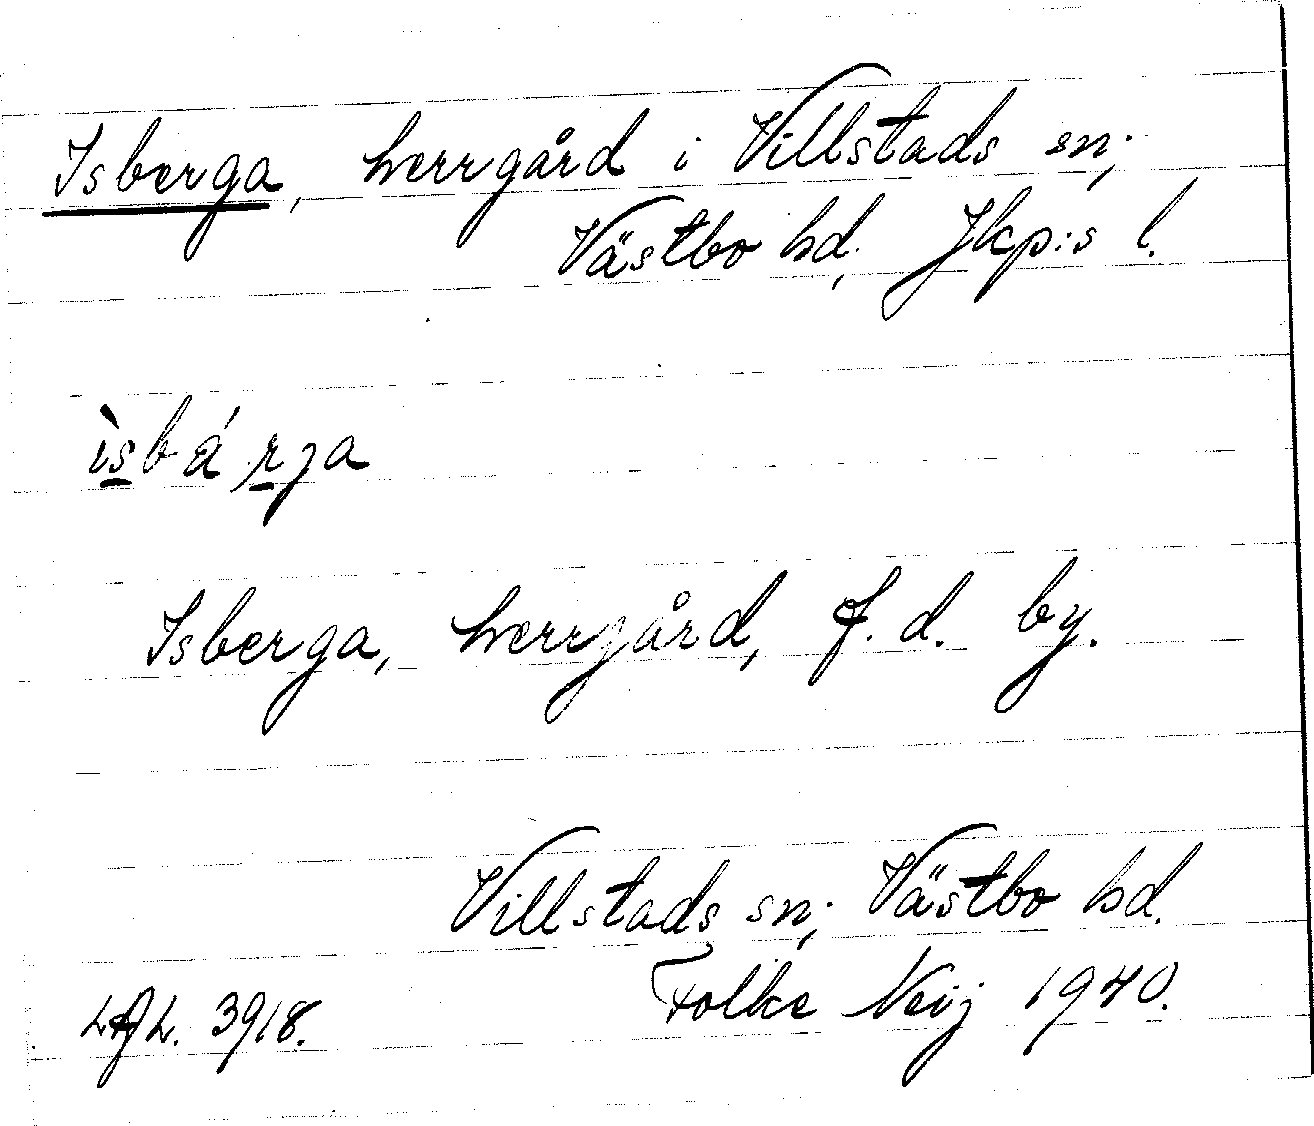 Isberga, herrgård i Villstads sn;
Västbo hd, Jkp:s l.
ìsbárja
Isberga, herrgård, f. d. by.
Villstads sn; Västbo hd.
Folke Neij 1940.
LAL. 3918.